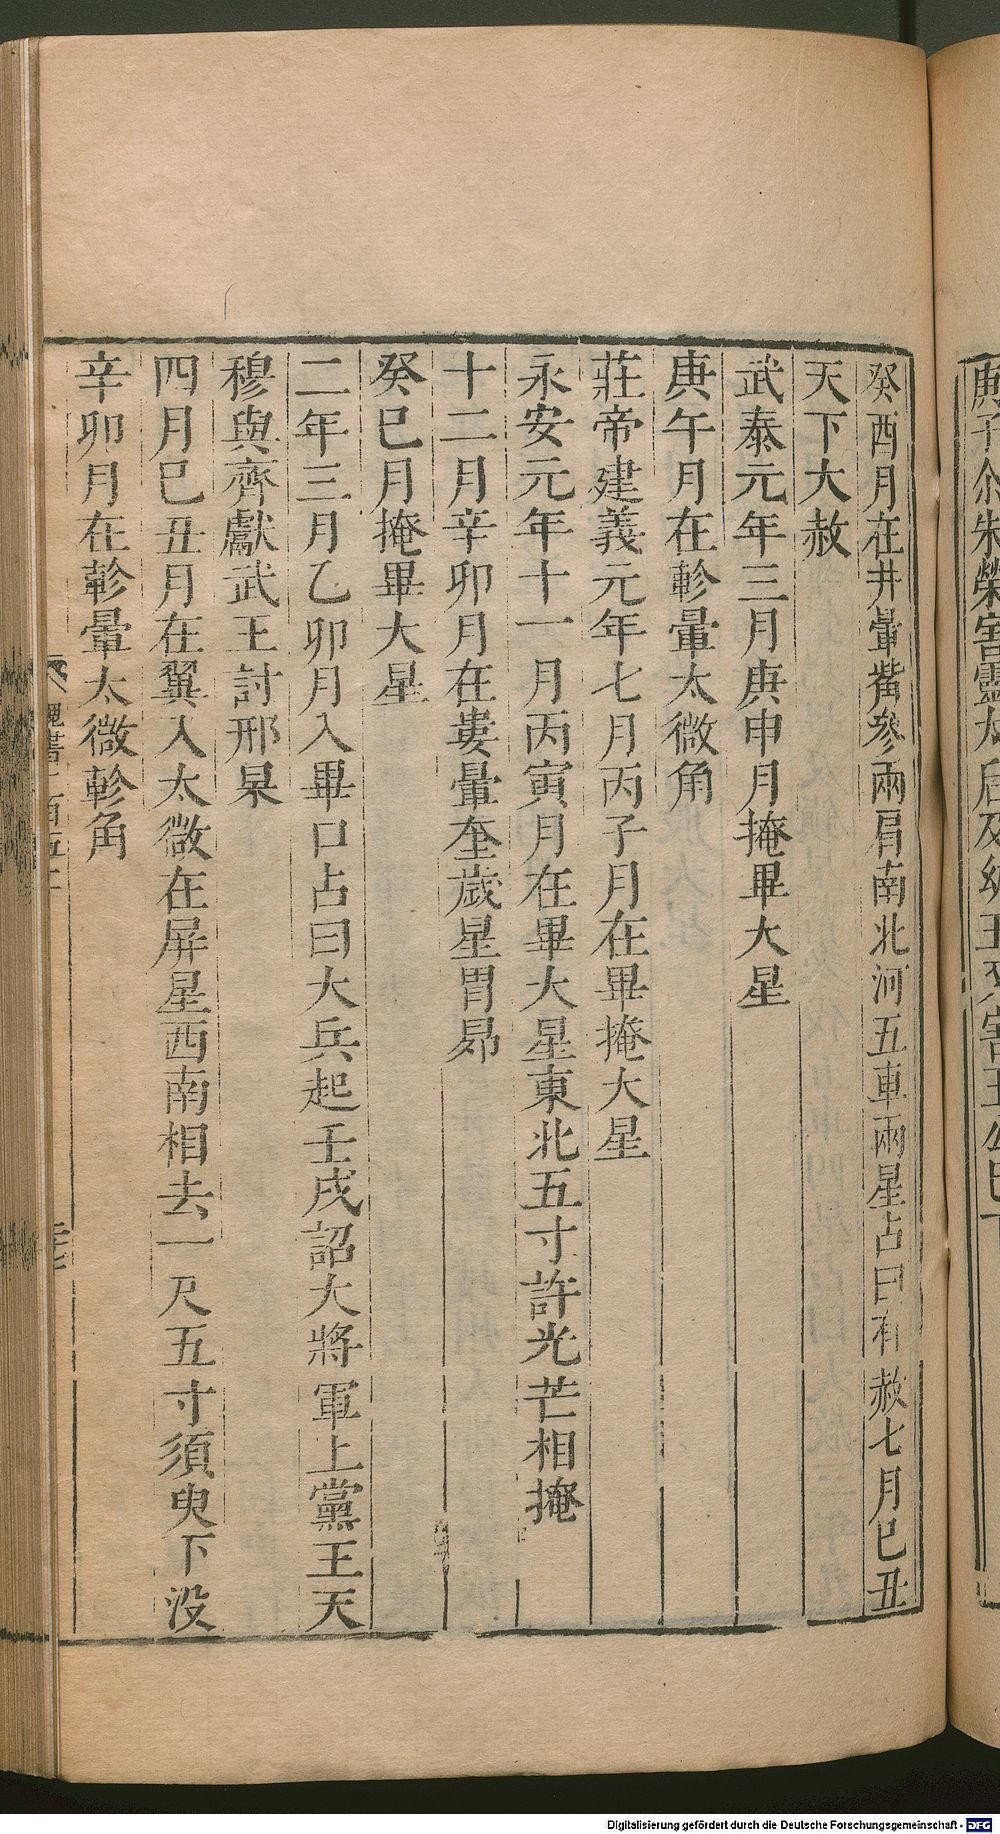 癸酉月在井暈觜參兩肩南北河五車兩星占曰有赦七月巳丑
天下大赦
武泰元年三月庚申月掩畢大星
庚午月在軫暈太微角
莊帝建義元年七月丙子月在畢掩大星
永安元年十一月丙寅月在畢大星東北五寸許光芒相掩
十二月辛卯月在婁暈奎歲星胃昴
癸巳月掩畢大星
二年三月乙卯月入畢口占曰大兵起壬戌詔大將軍上黨王天
穆與齊獻武王討邢杲
四月巳丑月在翼入太微在屏星西南相去一尺五寸須臾下没
辛卯月在軫暈太微軫角
Digitalisierung gefördert durch die Deutsche Forschungsgemeinschaft - DFG